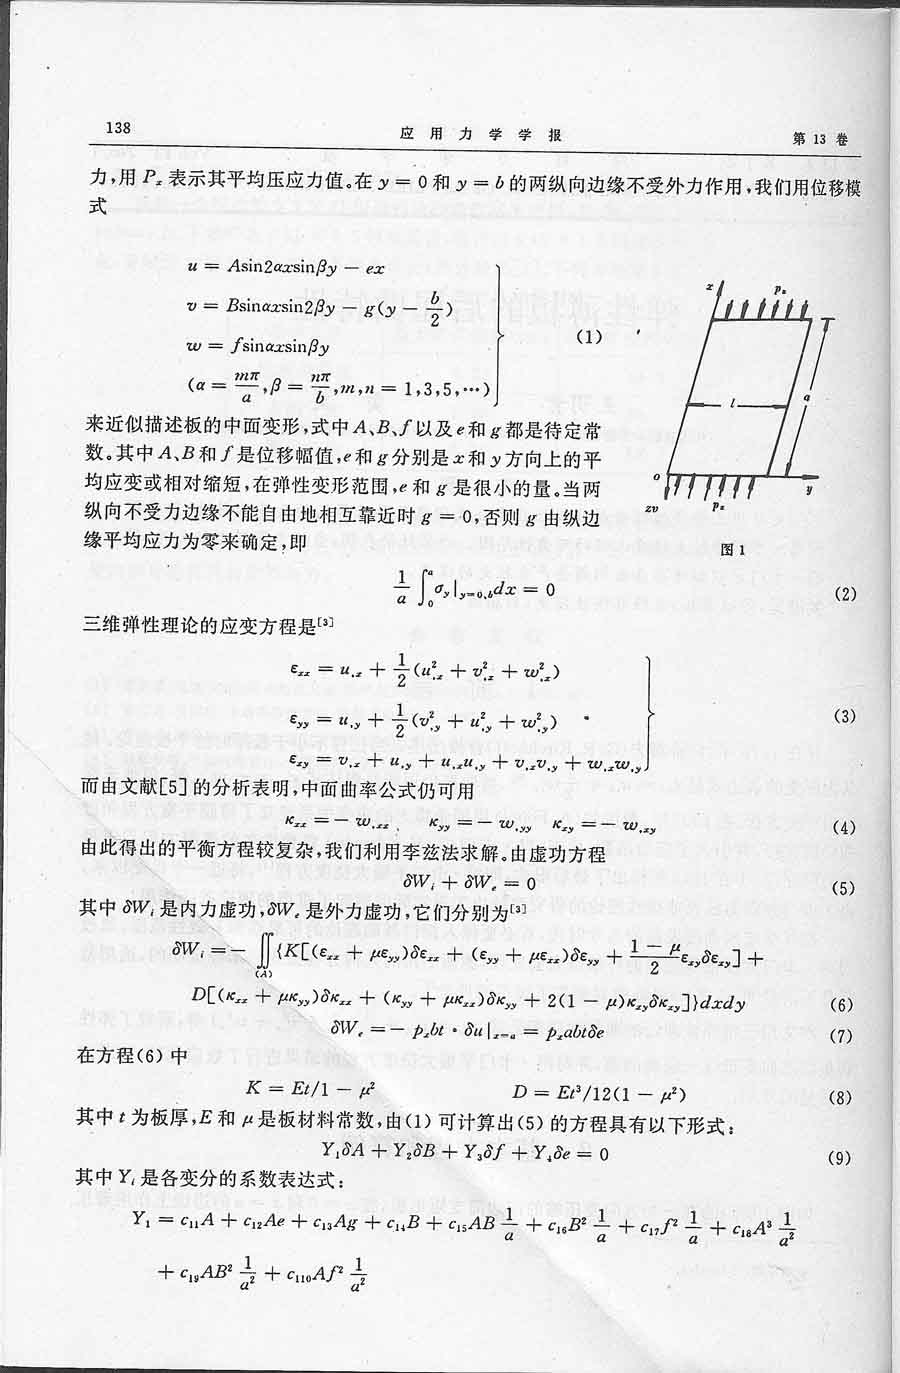 138
应 用 力 学 学 报
第 13 卷
力,用 Pₓ 表示其平均压应力值。在 y = 0 和 y = b 的两纵向边缘不受外力作用,我们用位移模
式
u = Asin2αxsinβy − ex
v = Bsinαxsin2βy − g(y − b/2)
w = fsinαxsinβy
(α = mπ/a, β = nπ/b, m,n = 1,3,5,⋯)
(1)
来近似描述板的中面变形,式中 A、B、f 以及 e 和 g 都是待定常
数。其中 A、B 和 f 是位移幅值,e 和 g 分别是 x 和 y 方向上的平
均应变或相对缩短,在弹性变形范围,e 和 g 是很小的量。当两
纵向不受力边缘不能自由地相互靠近时 g = 0,否则 g 由纵边
缘平均应力为零来确定,即
x
pₓ
l
a
o
y
zv
pₓ
图 1
1/a ∫₀ᵃ σ_y|_{y=0,b}dx = 0 (2)
三维弹性理论的应变方程是[3]
ε_xx = u_{,x} + 1/2(u²_{,x} + v²_{,x} + w²_{,x})
ε_yy = u_{,y} + 1/2(v²_{,y} + u²_{,y} + w²_{,y})
ε_xy = v_{,x} + u_{,y} + u_{,x}u_{,y} + v_{,x}v_{,y} + w_{,x}w_{,y}
(3)
而由文献[5]的分析表明,中面曲率公式仍可用
κ_xx = − w_{,xx} κ_yy = − w_{,yy} κ_xy = − w_{,xy} (4)
由此得出的平衡方程较复杂,我们利用李兹法求解。由虚功方程
δWᵢ + δWₑ = 0 (5)
其中 δWᵢ 是内力虚功,δWₑ 是外力虚功,它们分别为[3]
δWᵢ = − ∬_(A) {K[(ε_xx + με_yy)δε_xx + (ε_yy + με_xx)δε_yy + (1 − μ)/2 ε_xyδε_xy] +
D[(κ_xx + μκ_yy)δκ_xx + (κ_yy + μκ_xx)δκ_yy + 2(1 − μ)κ_xyδκ_xy]}dxdy (6)
δWₑ = − pₓbt · δu|_{x=a} = pₓabtδe (7)
在方程(6)中
K = Et/1 − μ² D = Et³/12(1 − μ²) (8)
其中 t 为板厚,E 和 μ 是板材料常数,由(1)可计算出(5)的方程具有以下形式:
Y₁δA + Y₂δB + Y₃δf + Y₄δe = 0 (9)
其中 Yᵢ 是各变分的系数表达式:
Y₁ = c₁₁A + c₁₂Ae + c₁₃Ag + c₁₄B + c₁₅AB 1/a + c₁₆B² 1/a + c₁₇f² 1/a + c₁₈A³ 1/a²
+ c₁₉AB² 1/a² + c₁₁₀Af² 1/a²